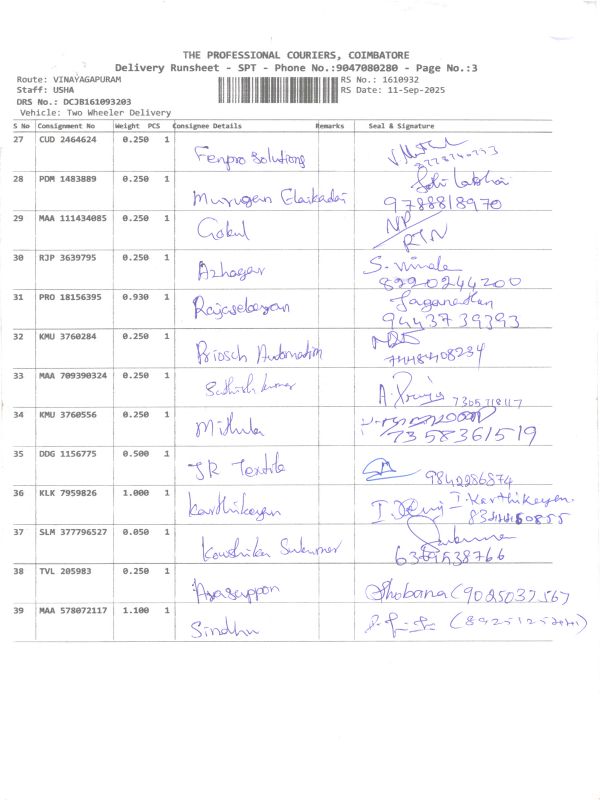 THE PROFESSIONAL COURIERS, COIMBATORE
Delivery Runsheet - SPT - Phone No.:9047080280 - Page No.:3
Route: VINAYAGAPURAM
RS No.: 1610932
Staff: USHA
RS Date: 11-Sep-2025
DRS No.: DCJB161093203
Vehicle: Two Wheeler Delivery
S No Consignment No Weight PCS Consignee Details Remarks Seal & Signature
27 CUD 2464624 0.250 1
Fenpro Solutions
28 PDM 1483889 0.250 1
Murugan
9788818970
29 MAA 111434085 0.250 1
Gokul NP
RTN
30 RJP 3639795 0.250 1
Azhagar S.
8220244200
31 PRO 18156395 0.930 1
Jaganathan
9443739393
32 KMU 3760284 0.250 1
Automation
33 MAA 709390324 0.250 1
Sathish kumar A.
34 KMU 3760556 0.250 1
Mithula 7358361519
35 DDG 1156775 0.500 1
JR Textile 9842286874
36 KLK 7959826 1.000 1
Karthikeyan I. Karthikeyan.
37 SLM 377796527 0.050 1
Kowshika Sukumar
38 TVL 205983 0.250 1
Arasappan Shobana (9025037567
39 MAA 578072117 1.100 1
Sindhu